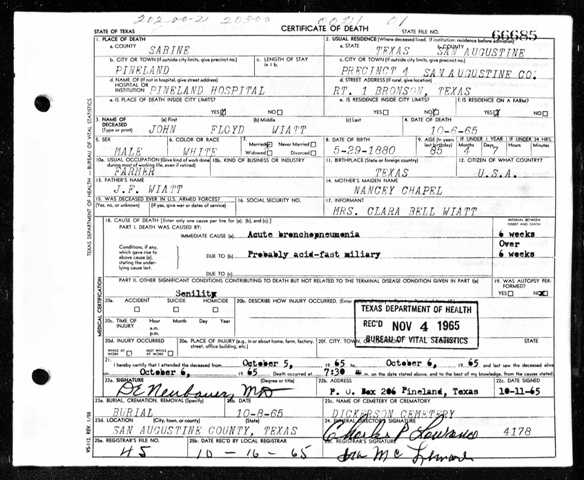 STATE OF TEXAS CERTIFICATE OF DEATH STATE FILE NO. 66685
1. PLACE OF DEATH 2. USUAL RESIDENCE (Where deceased lived. If institution: residence before admission)
a. COUNTY SABINE a. STATE TEXAS b. COUNTY SAN AUGUSTINE
b. CITY OR TOWN (If outside city limits, give precinct no.) c. LENGTH OF STAY c. CITY OR TOWN (If outside city limits, give precinct no.)
PINELAND PRECINCT 4 SAN AUGUSTINE CO.
d. NAME OF (If not in hospital, give street address) d. STREET ADDRESS (If rural, give location)
HOSPITAL OR INSTITUTION PINELAND HOSPITAL RT. 1 BRONSON, TEXAS
e. IS PLACE OF DEATH INSIDE CITY LIMITS? YES NO e. IS RESIDENCE INSIDE CITY LIMITS? YES NO f. IS RESIDENCE ON A FARM? YES NO
3. NAME OF DECEASED (Type or print) (a) First (b) Middle (c) Last 4. DATE OF DEATH
JOHN FLOYD WIATT 10-6-65
5. SEX 6. COLOR OR RACE 7. Married Never Married Widowed Divorced 8. DATE OF BIRTH 9. AGE (In years last birthday) IF UNDER 1 YEAR IF UNDER 24 HRS.
MALE WHITE 5-29-1880 85 4 7
10a. USUAL OCCUPATION (Give kind of work done during most of working life, even if retired) 10b. KIND OF BUSINESS OR INDUSTRY 11. BIRTHPLACE (State or foreign country) 12. CITIZEN OF WHAT COUNTRY?
FARMER TEXAS U.S.A.
13. FATHER'S NAME 14. MOTHER'S MAIDEN NAME
J.F. WIATT NANCEY CHAPEL
15. WAS DECEASED EVER IN U.S. ARMED FORCES? 16. SOCIAL SECURITY NO. 17. INFORMANT
(Yes, no, or unknown) (If yes, give war or dates of service) MRS. CLARA BELL WIATT
18. CAUSE OF DEATH (Enter only one cause per line for (a), (b), and (c).) INTERVAL BETWEEN ONSET AND DEATH
PART I. DEATH WAS CAUSED BY:
IMMEDIATE CAUSE (a) Acute bronchopneumonia 6 weeks
Conditions, if any, which gave rise to above cause (a), stating the underlying cause last.
DUE TO (b) Probably acid-fast miliary Over 6 weeks
DUE TO (c)
PART II. OTHER SIGNIFICANT CONDITIONS CONTRIBUTING TO DEATH BUT NOT RELATED TO THE TERMINAL DISEASE CONDITION GIVEN IN PART I(a) 19. WAS AUTOPSY PERFORMED? YES NO
Senility
20a. ACCIDENT SUICIDE HOMICIDE 20b. DESCRIBE HOW INJURY OCCURRED.
20c. TIME OF INJURY Hour Month Day Year a.m. p.m.
TEXAS DEPARTMENT OF HEALTH
REC'D NOV 4 1965
BUREAU OF VITAL STATISTICS
20d. INJURY OCCURRED 20e. PLACE OF INJURY (e.g., in or about home, farm, factory, street, office building, etc.) 20f. CITY, TOWN,
21. I hereby certify that I attended the deceased from October 5, 1965 to October 6, 1965 and last saw the deceased alive
October 6, 1965 Death occurred at 7:30 m. on the date stated above, and to the best of my knowledge, from the causes stated.
22a. SIGNATURE (Degree or title) 22b. ADDRESS 22c. DATE SIGNED
D E Neubauer, MD P. O. Box 206 Pineland, Texas 10-11-65
23a. BURIAL, CREMATION, REMOVAL (Specify) 23b. DATE 23c. NAME OF CEMETERY OR CREMATORY
BURIAL 10-8-65 DICKERSON CEMETERY
23d. LOCATION (City, town, or county) (State) 24. FUNERAL DIRECTOR'S SIGNATURE
SAN AUGUSTINE COUNTY, TEXAS Charles P 4178
25a. REGISTRAR'S FILE NO. 25b. DATE REC'D BY LOCAL REGISTRAR REGISTRAR'S SIGNATURE
45 10-16-65
TEXAS DEPARTMENT OF HEALTH — BUREAU OF VITAL STATISTICS
MEDICAL CERTIFICATION